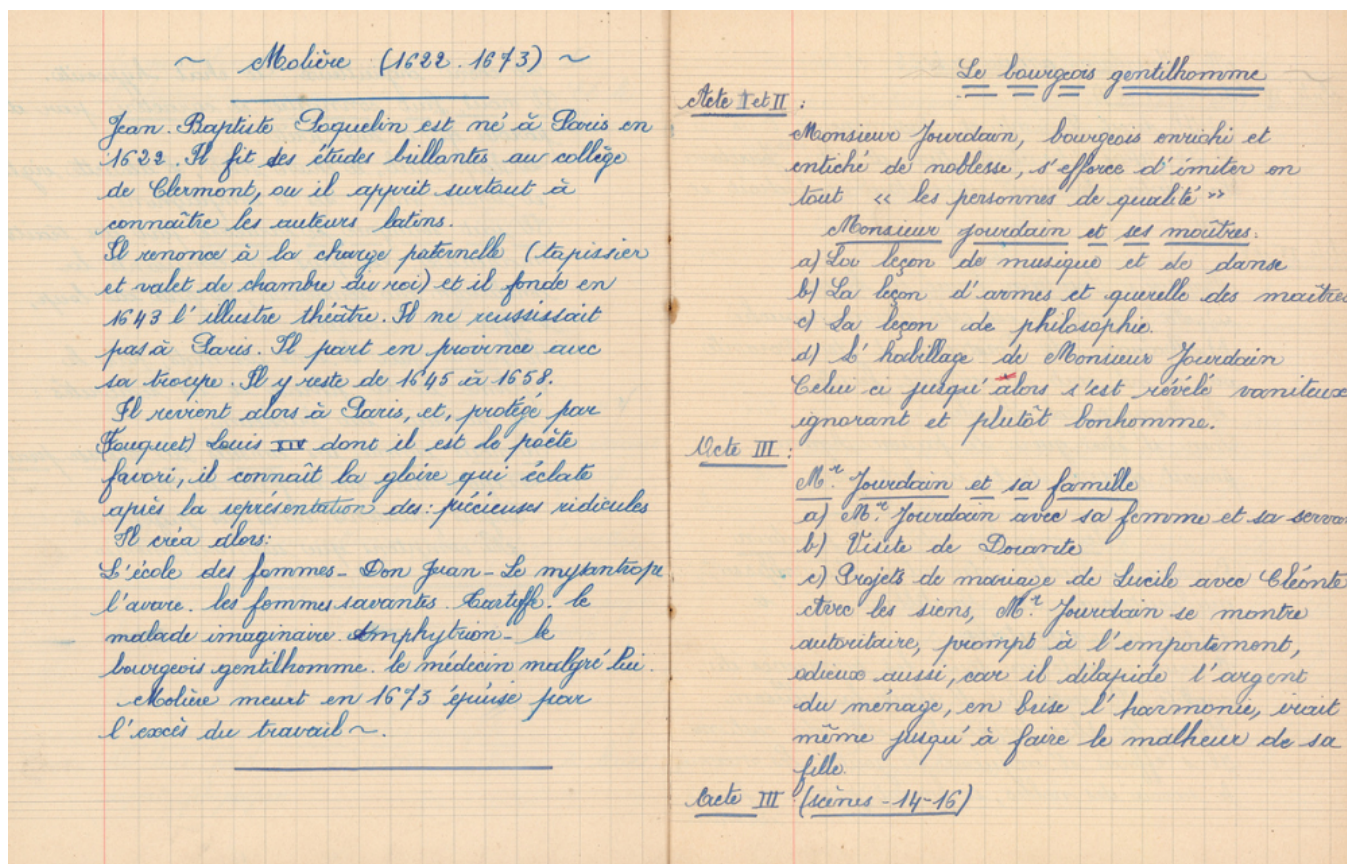 ~ Molière (1622.1673) ~
Jean. Baptiste Poquelin est né à Paris en
1622. Il fit des études brillantes au collège
de Clermont, ou il apprit surtout à
connaître les auteurs latins.
Il renonce à la charge paternelle (tapissier
et valet de chambre du roi) et il fonde en
1643 l'illustre théâtre. Il ne reussissait
pas à Paris. Il part en province avec
sa troupe. Il y reste de 1645 à 1658.
Il revient alors à Paris, et, protégé par
Fouquet) Louis XIV dont il est le poète
favori, il connaît la gloire qui éclate
après la représentation des: précieuses ridicules
Il créa alors:
L'école des femmes - Don Juan - Le mysantrope
l'avare. les femmes savantes. Tartuffe. le
malade imaginaire. Amphytrion - le
bourgeois gentilhomme. le médecin malgré lui.
Molière meurt en 1673 épuisé par
l'excès du travail ~.
Le bourgeois gentilhomme
Acte I et II :
Monsieur Jourdain, bourgeois enrichi et
entiché de noblesse, s'efforce d'imiter en
tout « les personnes de qualité »
Monsieur Jourdain et ses maîtres.
a) La leçon de musique et de danse
b) La leçon d'armes et querelle des maîtres
c) La leçon de philosophie.
d) L'habillage de Monsieur Jourdain
Celui ci jusqu'alors s'est révélé vaniteux
ignorant et plutôt bonhomme.
Acte III :
Mr. Jourdain et sa famille
a) Mr. Jourdain avec sa femme et sa servan
b) Visite de Dorante
c) Projets de mariage de Lucile avec Cléonte
Avec les siens, Mr. Jourdain se montre
autoritaire, prompt à l'emportement,
odieux aussi, car il dilapide l'argent
du ménage, en brise l'harmonie, irait
même jusqu'à faire le malheur de sa
fille.
Acte III (scènes - 14-16)